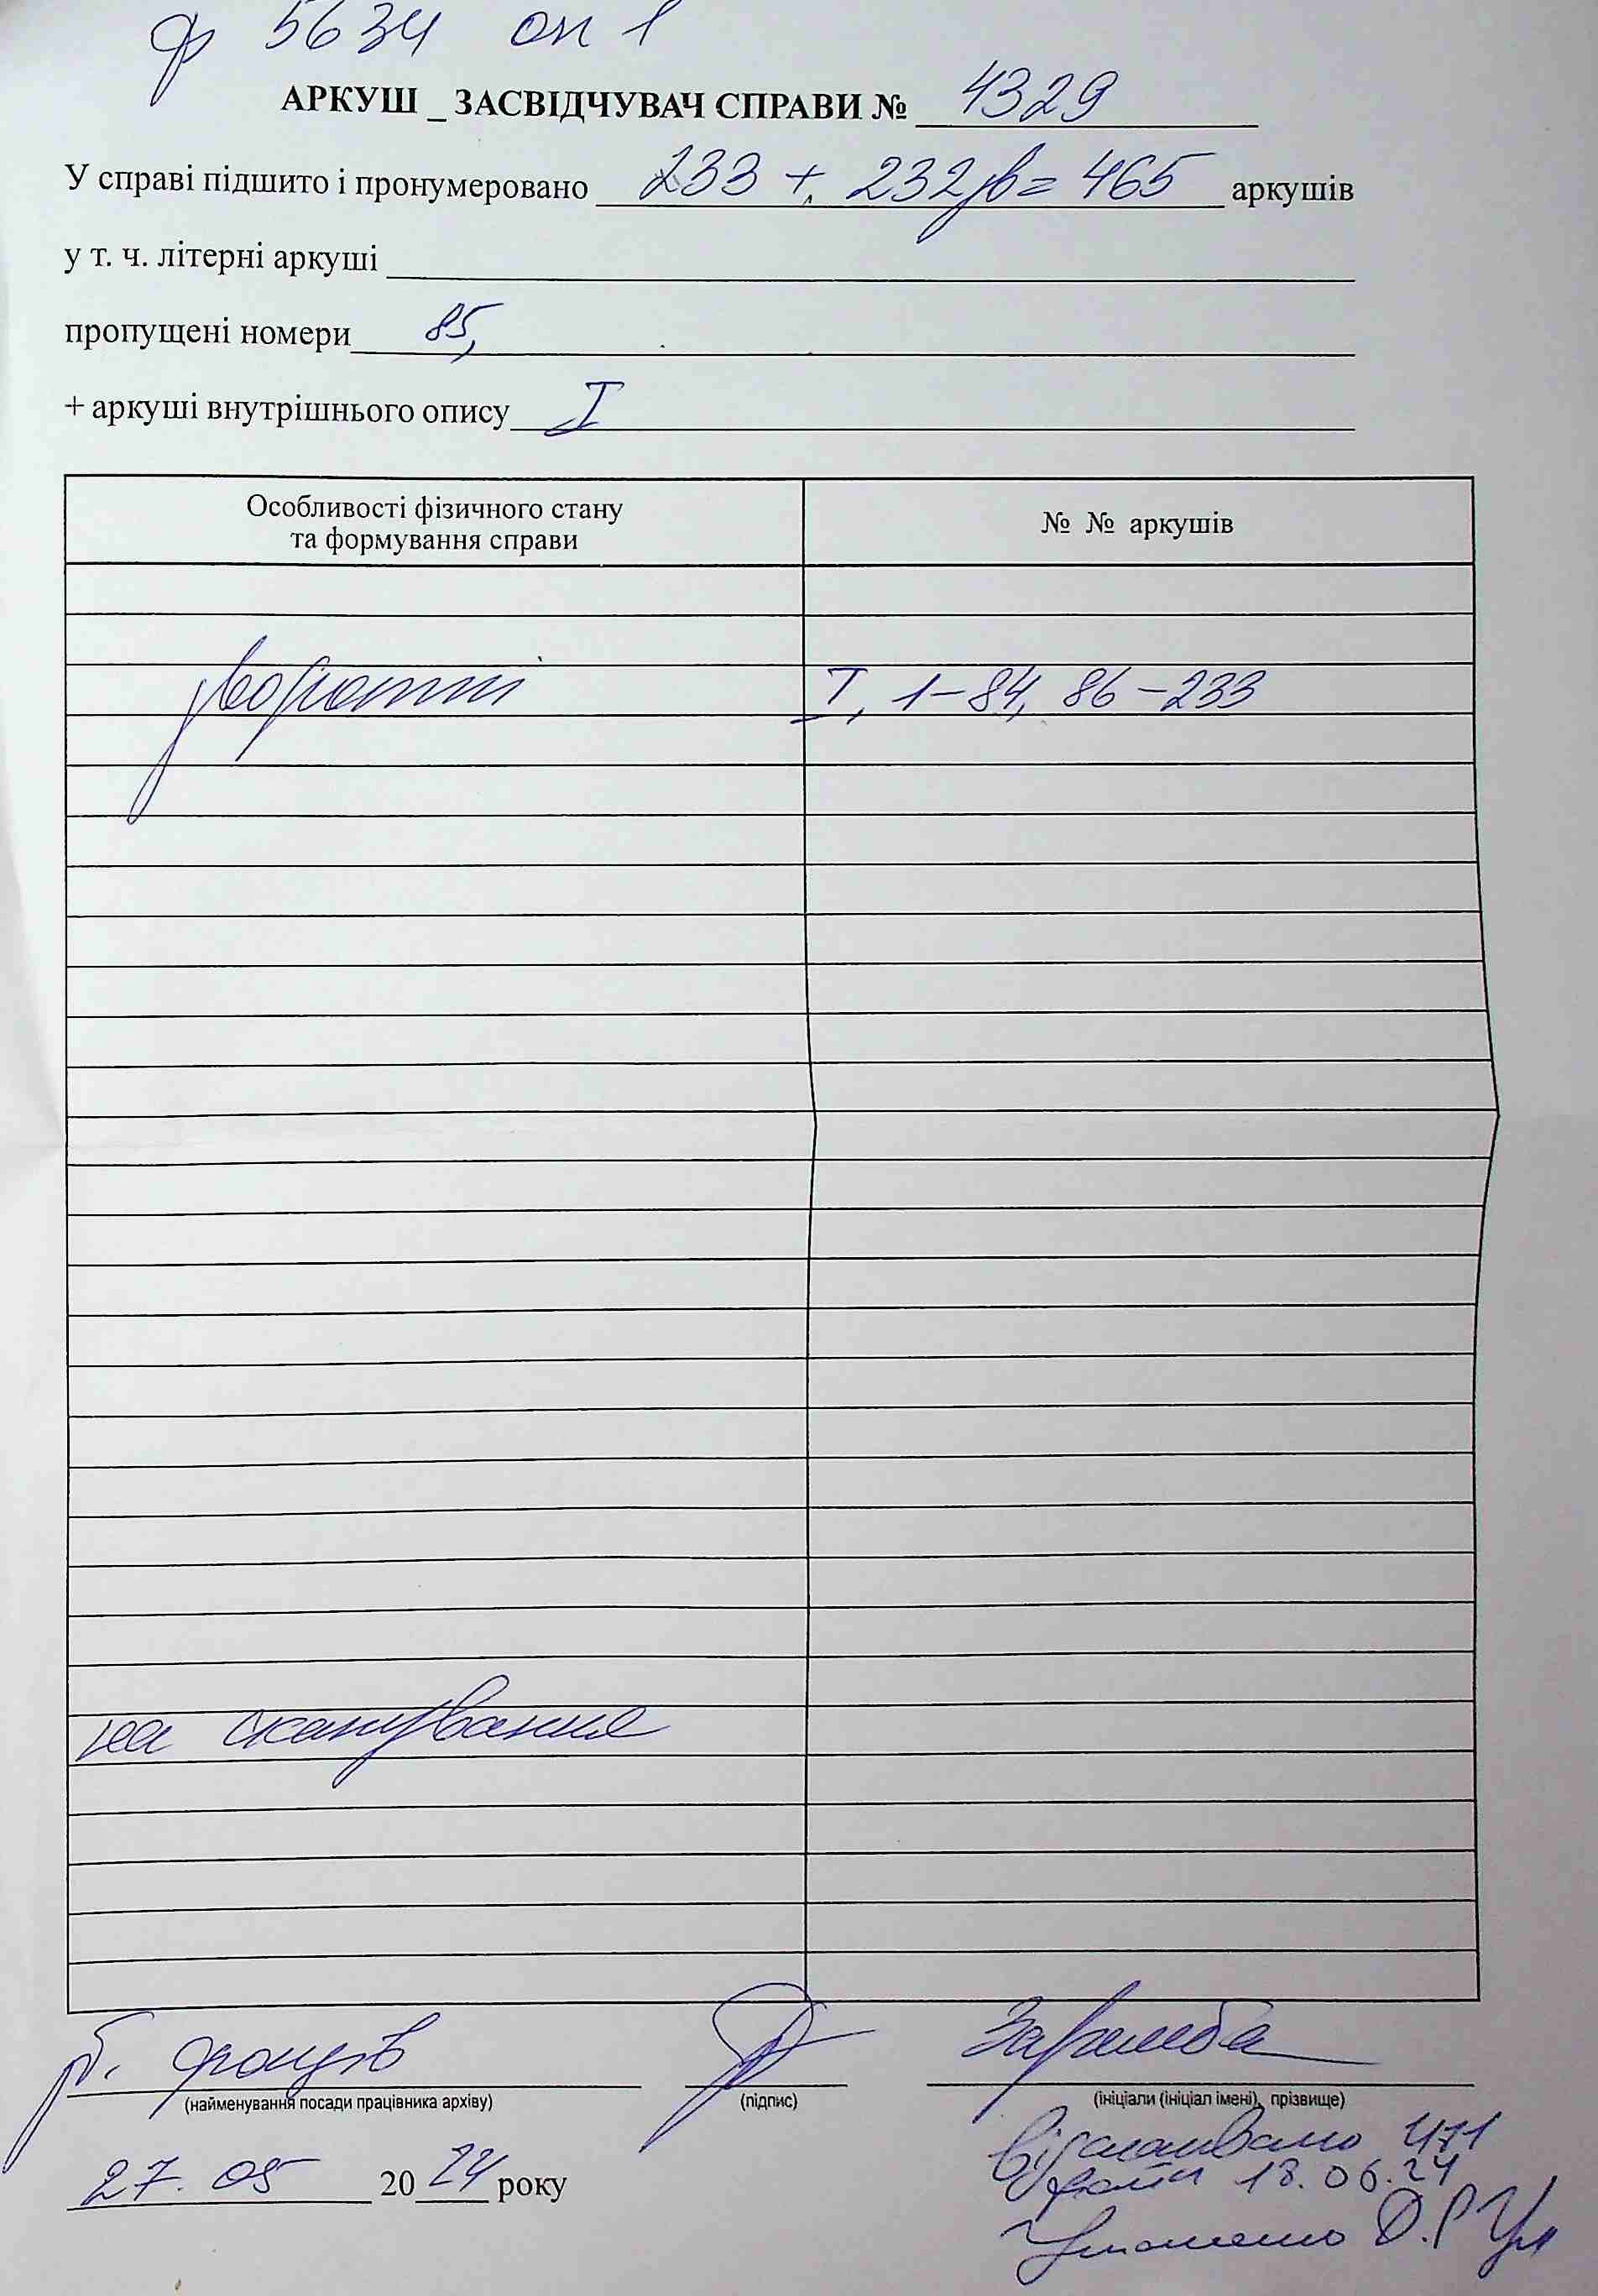 ф 5634 оп 1
АРКУШ _ ЗАСВІДЧУВАЧ СПРАВИ № 4329
У справі підшито і пронумеровано 233 + 232зв = 465 аркушів
у т. ч. літерні аркуші
пропущені номери 85,
+ аркуші внутрішнього опису I
Особливості фізичного стану
та формування справи
№ № аркушів
звороти I, 1-84, 86-233
на сканування
фондів Заремба
(найменування посади працівника архіву) (підпис) (ініціали (ініціал імені), прізвище)
Відскановано 471
файл 18.06.24
27. 05 2024 року